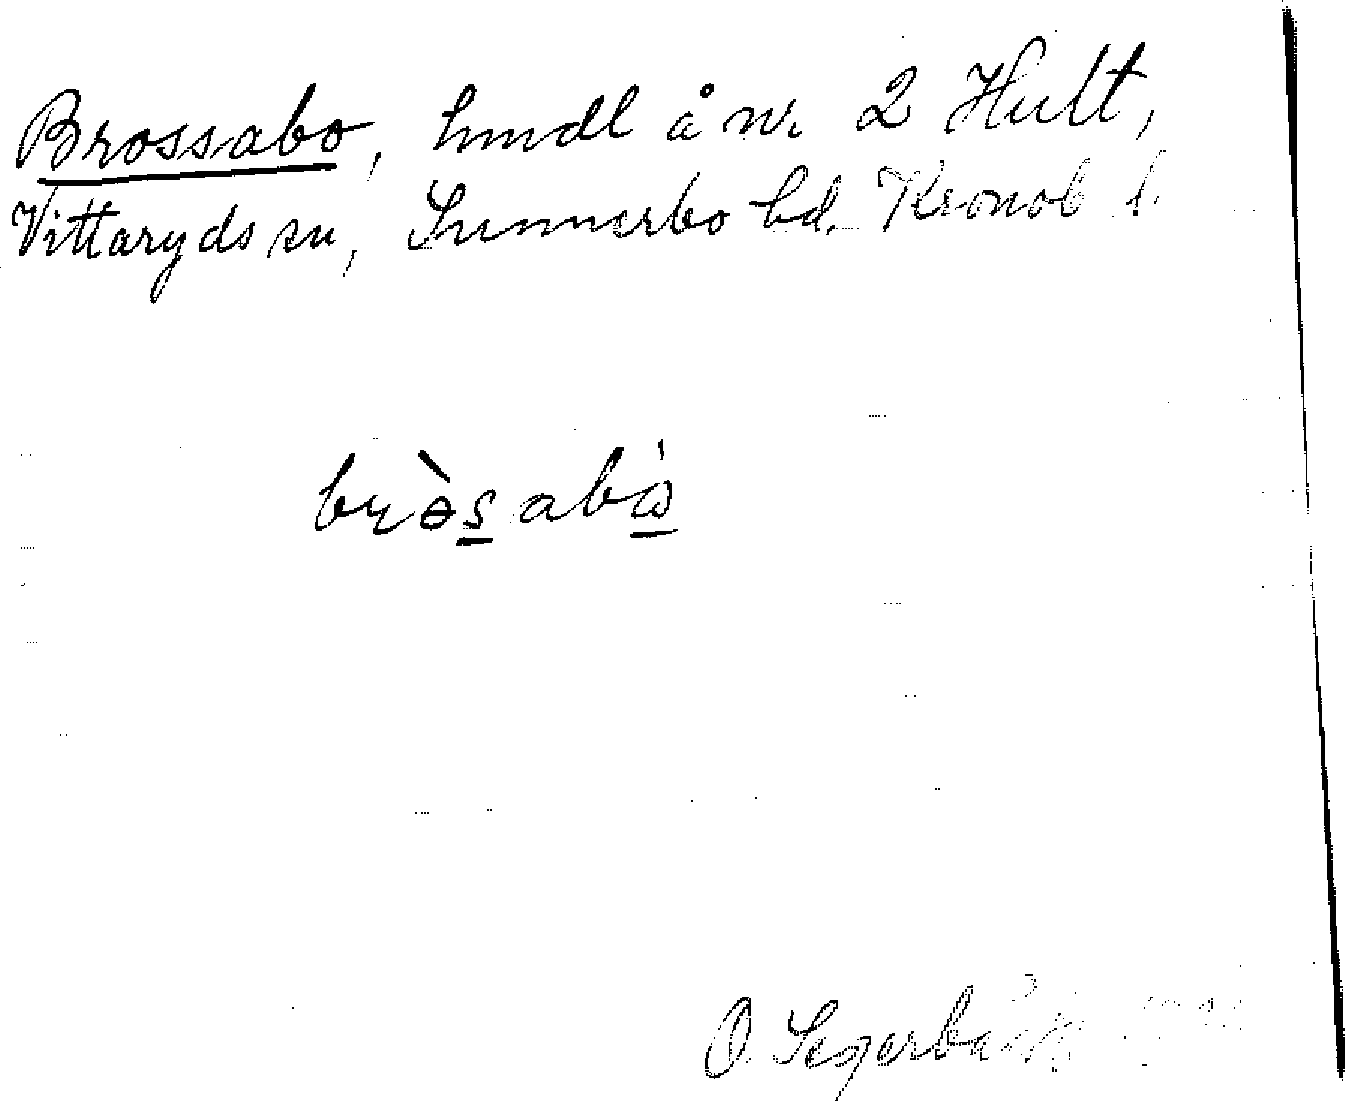 Brossabo, hmdl å nr 2 Hult,
Vittaryds sn, Sunnerbo hd. Kronob l.
brɵ̀sabɷ̀
O. Segerbäck